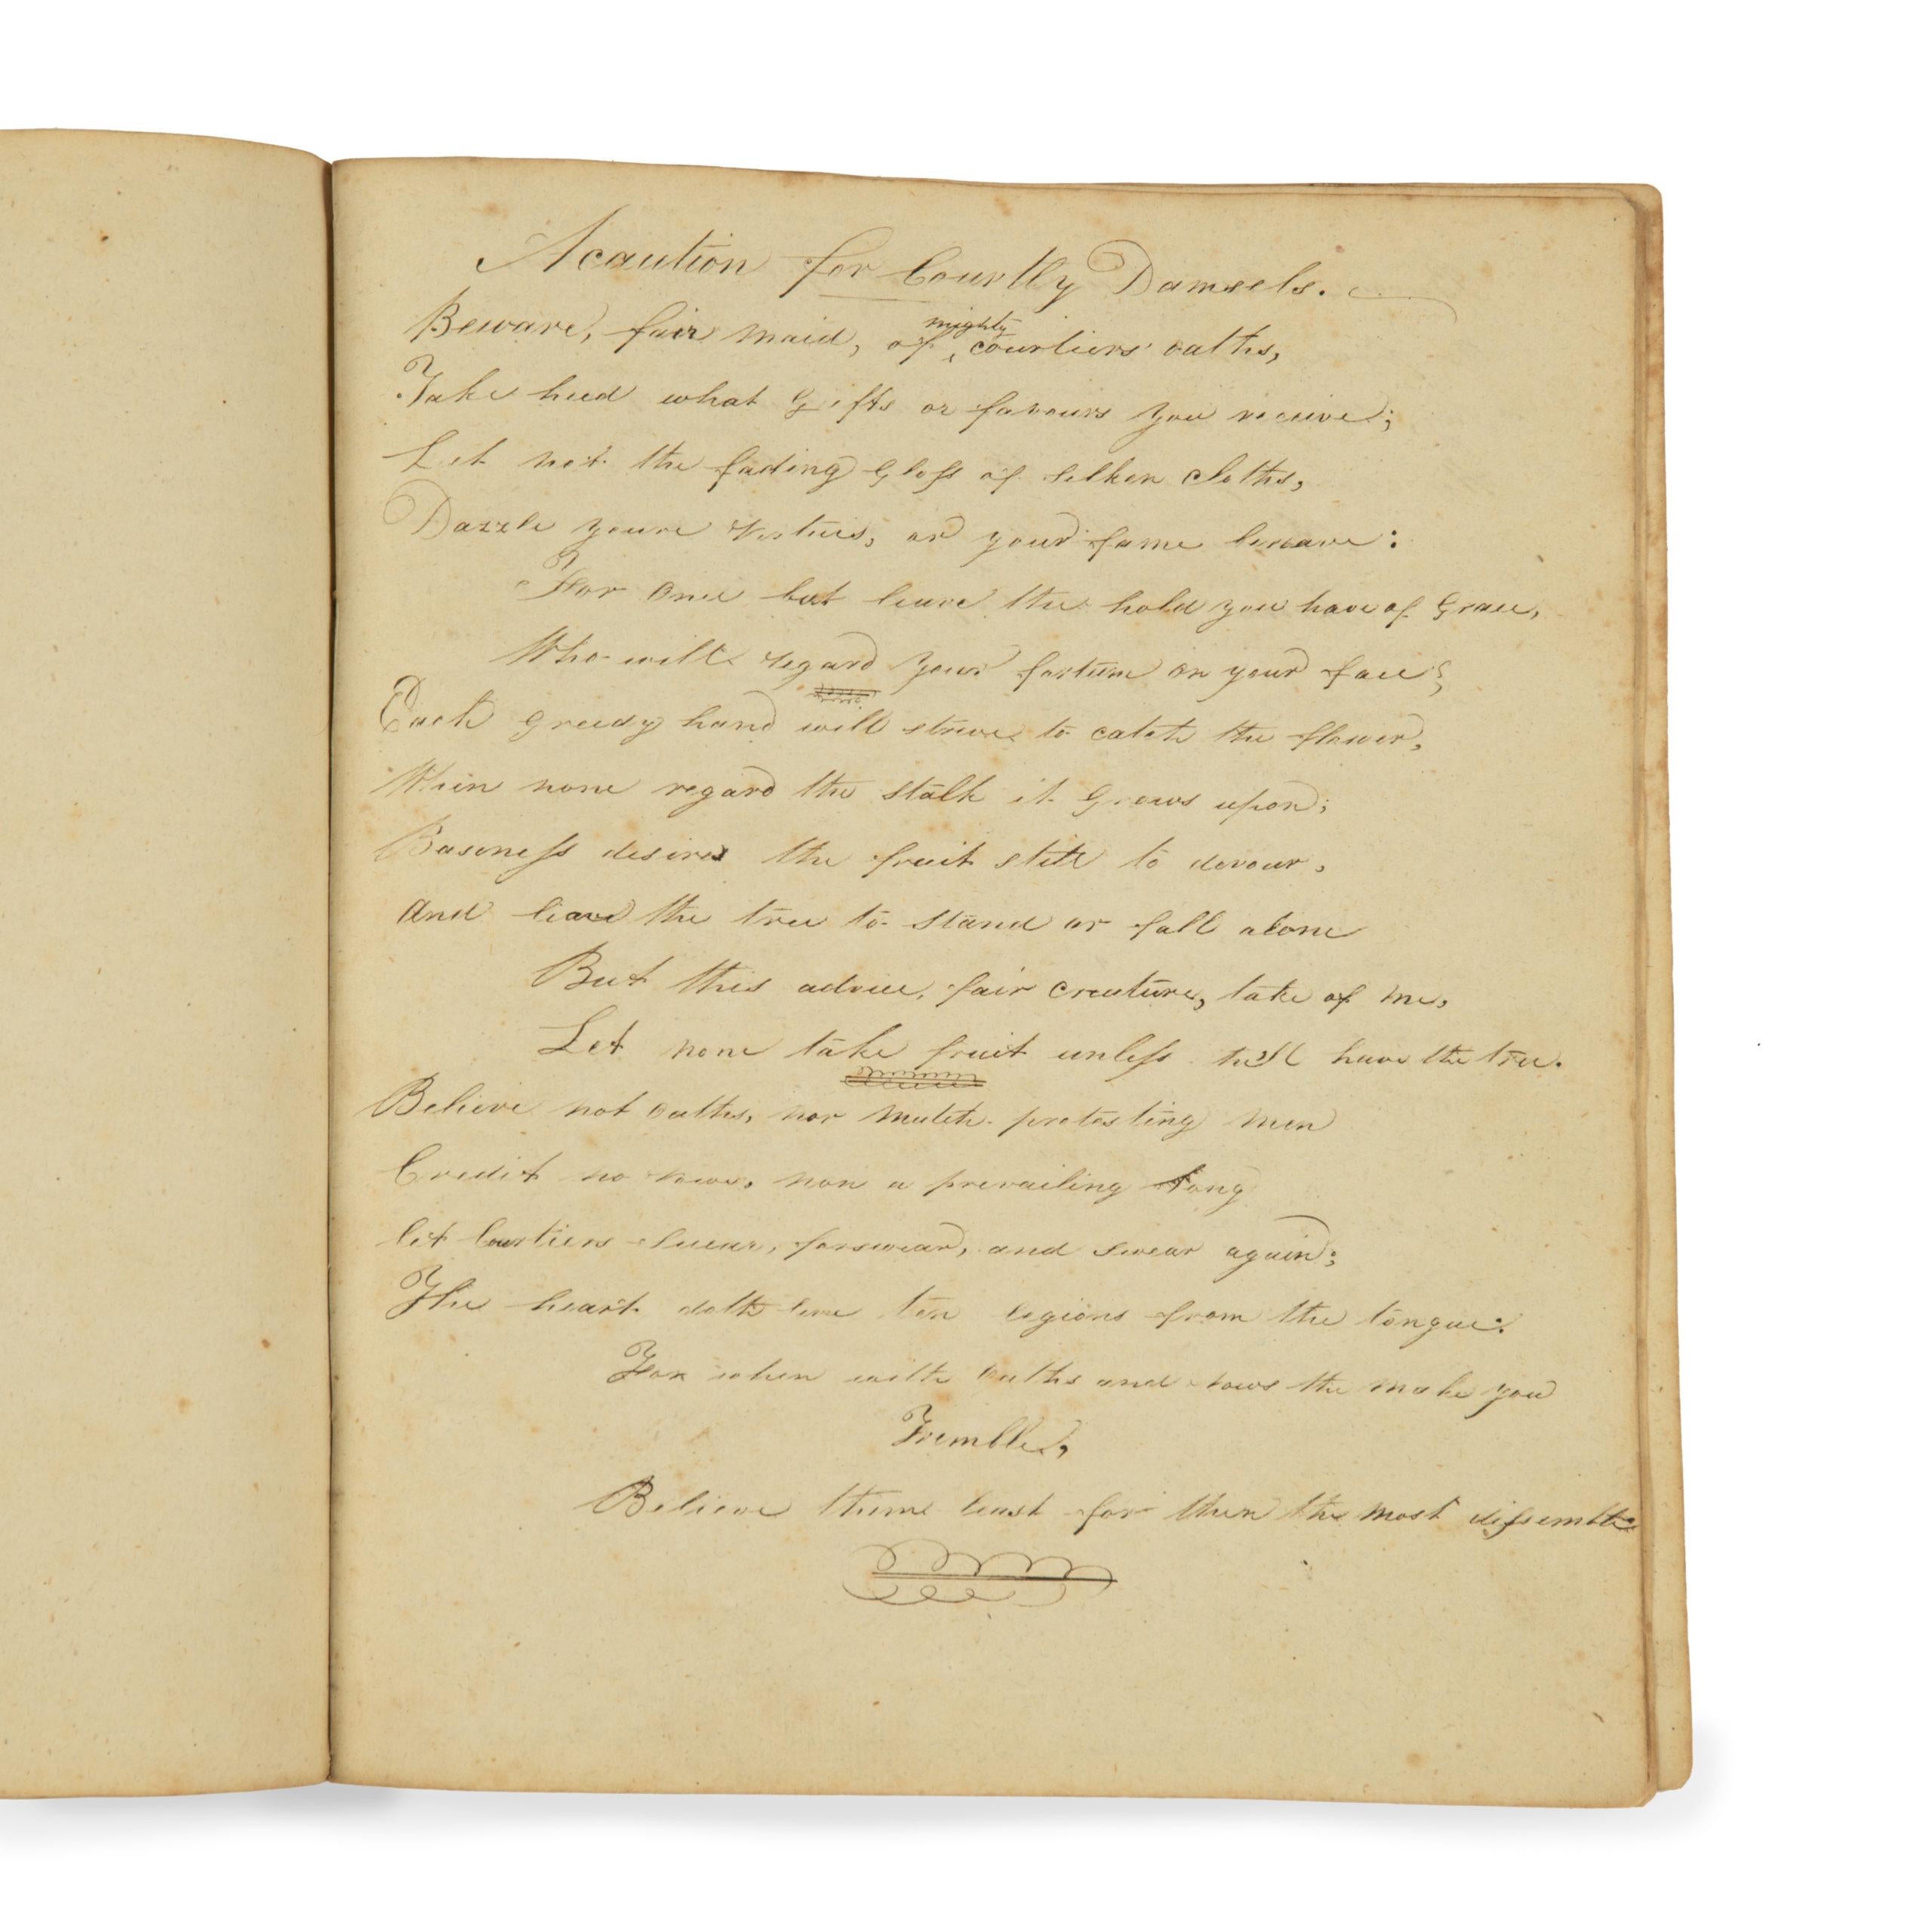 Acaution for Courtly Damsels.
Beware, fair maid, of mighty courtiers' oaths,
Take heed what Gifts or favours you receive;
Let not the fading Gloss of silken cloths,
Dazzle youre Vertues, or your fame bereave:
For once but leave the hold you have of Grace,
Who will regard your fortune or your face;
Each Greedy hand will strive to catch the flower,
When none regard the stalk it Grows upon;
Baseness desires the fruit still to devour,
And leave the tree to stand or fall alone
But this advice, fair Creature, take of me,
Let none take fruit unless he'll have the tree.
Believe not oaths, nor mutch protesting men
Credit no vows, non a prevailing tong
let Courtiers swear, forswear, and swear again;
The heart doth live ten legions from the tongue:
For when with oaths and vows the make you
Tremble,
Believe theme least for then the most dissemble